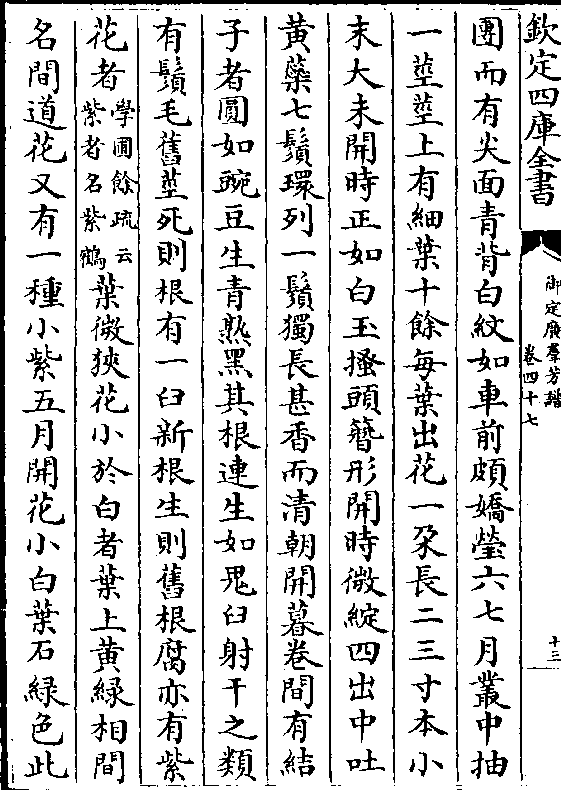 欽定四庫全書
御定廣羣芳譜
卷四十七
十三
團而有尖面青背白紋如車前頗嬌瑩六七月叢中抽
一莖莖上有細葉十餘每葉出花一朶長二三寸本小
末大未開時正如白玉搔頭簪形開時微綻四出中吐
黃蘂七鬚環列一鬚獨長甚香而清朝開暮卷間有結
子者圓如豌豆生青熟黑其根連生如鬼臼射干之類
有鬚毛舊莖死則根有一臼新根生則舊根腐亦有紫
花者學圃餘疏云紫者名紫鶴葉微狹花小於白者葉上黃綠相間
名間道花又有一種小紫五月開花小白葉石綠色此